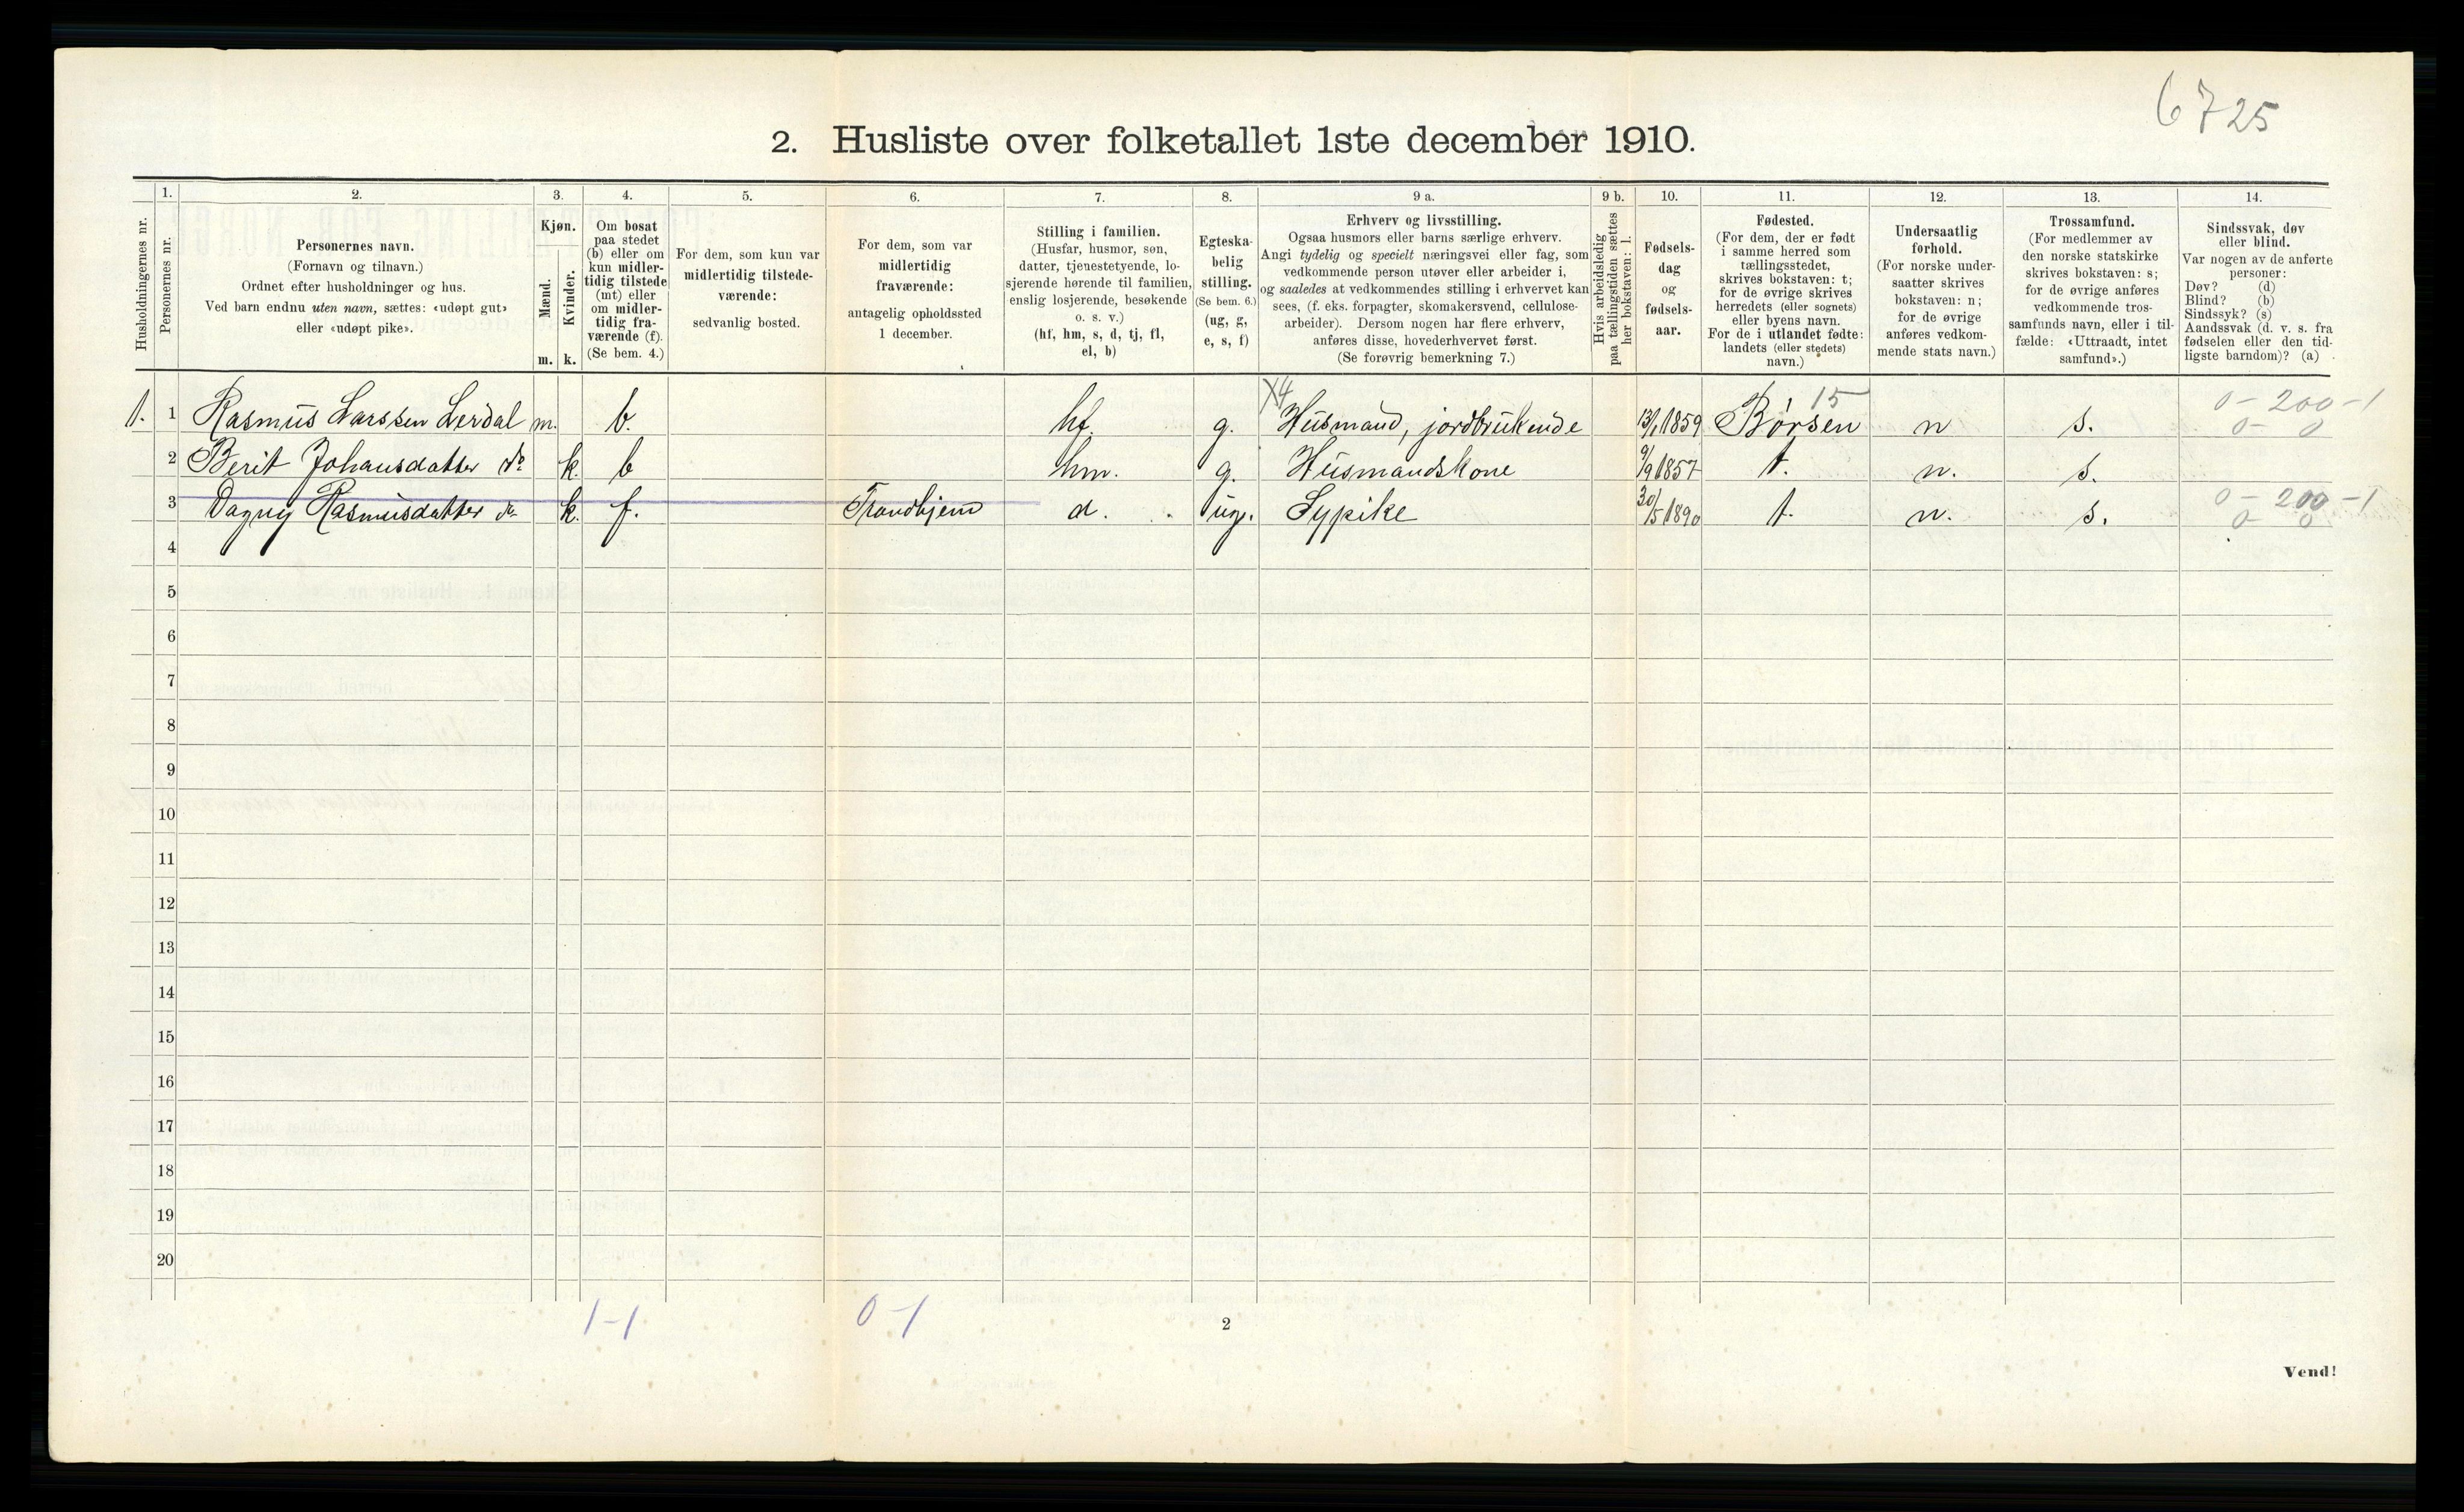 6725
2. Husliste over folketallet 1ste december 1910.
1. 2. 3. 4. 5. 6. 7. 8. 9 a. 9 b. 10. 11. 12. 13. 14.
Husholdningernes nr.
Personernes nr.
Personernes navn.
(Fornavn og tilnavn.)
Ordnet efter husholdninger og hus.
Ved barn endnu uten navn, sættes: «udøpt gut»
eller «udøpt pike».
Kjøn.
Mænd.
Kvinder.
m. k.
Om bosat
paa stedet
(b) eller om
kun midler-
tidig tilstede
(mt) eller
om midler-
tidig fra-
værende (f).
(Se bem. 4.)
For dem, som kun var
midlertidig tilstede-
værende:
sedvanlig bosted.
For dem, som var
midlertidig
fraværende:
antagelig opholdssted
1 december.
Stilling i familien.
(Husfar, husmor, søn,
datter, tjenestetyende, lo-
sjerende hørende til familien,
enslig losjerende, besøkende
o. s. v.)
(hf, hm, s, d, tj, fl,
el, b)
Egteska-
belig
stilling.
(Se bem. 6.)
(ug, g,
e, s, f)
Erhverv og livsstilling.
Ogsaa husmors eller barns særlige erhverv.
Angi tydelig og specielt næringsvei eller fag, som
vedkommende person utøver eller arbeider i,
og saaledes at vedkommendes stilling i erhvervet kan
sees, (f. eks. forpagter, skomakersvend, cellulose-
arbeider). Dersom nogen har flere erhverv,
anføres disse, hovederhvervet først.
(Se forøvrig bemerkning 7.)
Hvis arbeidsledig
paa tællingstiden sættes
her bokstaven: l.
Fødsels-
dag
og
fødsels-
aar.
Fødested.
(For dem, der er født
i samme herred som
tællingsstedet,
skrives bokstaven: t;
for de øvrige skrives
herredets (eller sognets)
eller byens navn.
For de i utlandet fødte:
landets (eller stedets)
navn.)
Undersaatlig
forhold.
(For norske under-
saatter skrives
bokstaven: n;
for de øvrige
anføres vedkom-
mende stats navn.)
Trossamfund.
(For medlemmer av
den norske statskirke
skrives bokstaven: s;
for de øvrige anføres
vedkommende tros-
samfunds navn, eller i til-
fælde: «Uttraadt, intet
samfund».)
Sindssvak, døv
eller blind.
Var nogen av de anførte
personer:
Døv? (d)
Blind? (b)
Sindssyk? (s)
Aandssvak (d. v. s. fra
fødselen eller den tid-
ligste barndom)? (a)
X4 15 0 - 200 - 1
1. 1 Rasmus Larssen Lerdal m. b. hf. g. Husmand, jordbrukende 13/1 1859 Børsen n s. 0 - 0
2 Berit Johansdatter do k. b hm. g. Husmandskone 9/9 1857 t. n. s.
3 Dagny Rasmusdatter do k. f. Trondhjem d. ug. Sypike 30/5 1890 t. n. s. 0 - 200 - 1
0 - 0
4
5
6
7
8
9
10
11
12
13
14
15
16
17
18
19
20
1-1 0-1
2
Vend!